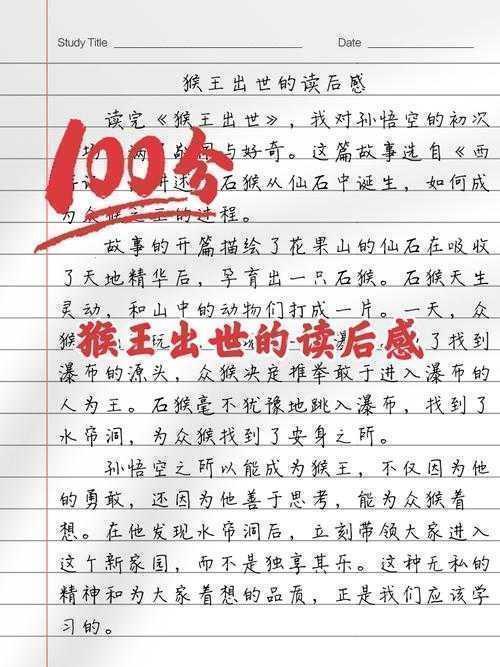 Study Title
Date
猴王出世的读后感
读完《猴王出世》，我对孙悟空的初次
满了敬佩与好奇。这篇故事选自《西
讲述 石猴从仙石中诞生，如何成
为众猴之王的过程。
100分
故事的开篇描绘了花果山的仙石在吸收
了天地精华后，孕育出一只石猴。石猴天生
灵动，和山中的动物们打成一片。一天，众
猴 玩 瀑 了找到
猴王出世的读后感
瀑布的源头，众猴决定推举敢于进入瀑布的
人为王。石猴毫不犹豫地跳入瀑布，找到了
水帘洞，为众猴找到了安身之所。
孙悟空之所以能成为猴王，不仅因为他
的勇敢，还因为他善于思考，能为众猴着
想。在他发现水帘洞后，立刻带领大家进入
这个新家园，而不是独享其乐。这种无私的
精神和为大家着想的品质，正是我们应该学
习的。